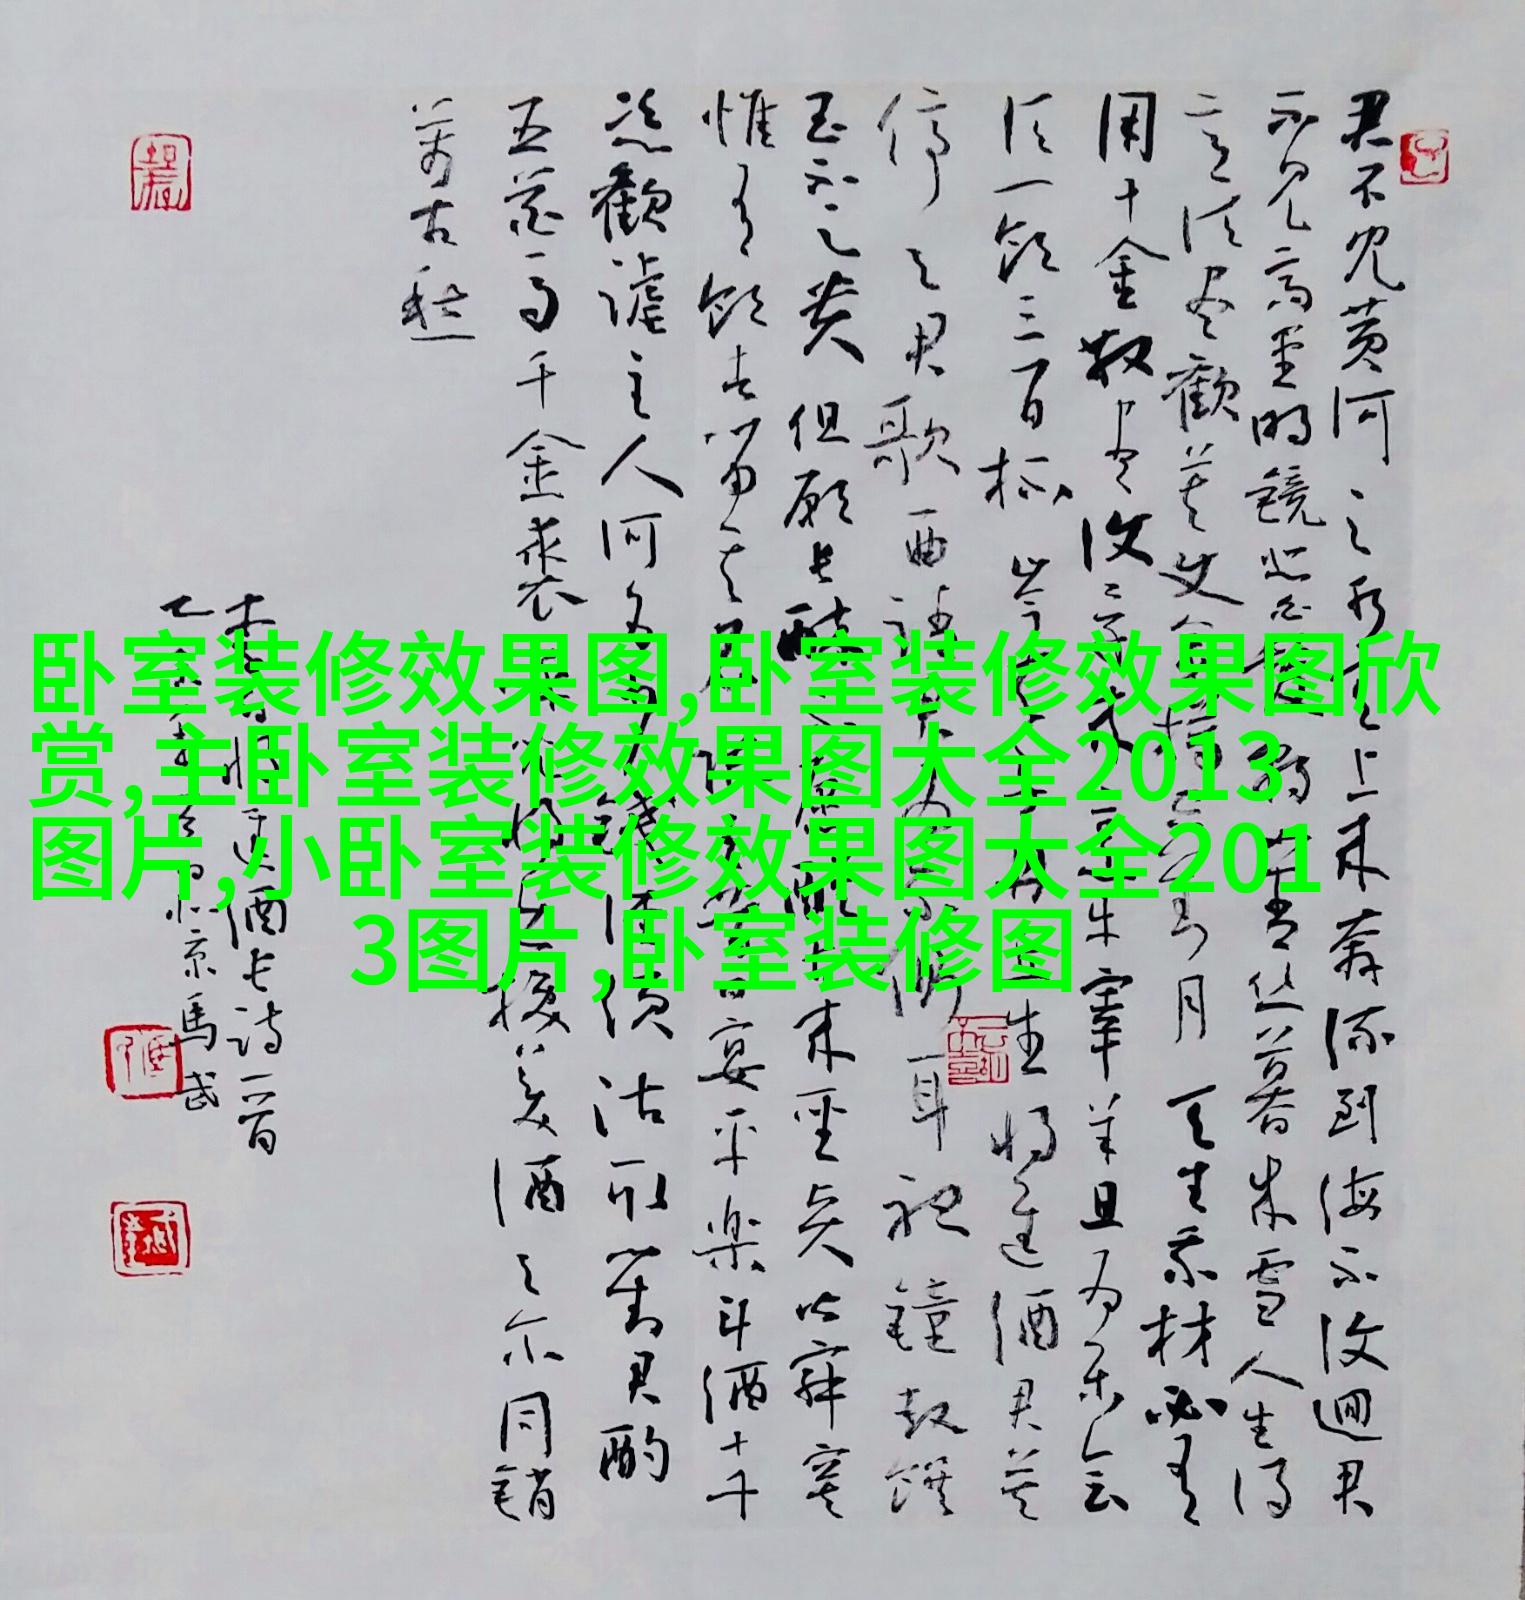 君不見黄河之水天上来奔流到海不復迴君
不見高堂明鏡悲白髮朝如青丝暮成雪人生得
意须尽歡莫使金樽空對月天生我材必有
用千金散尽復还来烹牛宰羊且为乐会
须一飲三百杯岑夫子丹丘生将進酒君莫
停与君歌一曲请君为我倾耳听鐘鼓饌
玉不足贵但願长醉不願醒古来聖贤皆寂寞
惟有飲者留其名陈王昔日宴平樂斗酒十千
恣歡謔主人何为言少錢径须沽取對君酌
五花马千金裘呼兒将出换美酒与尔同銷
萬古愁
李白将進酒长詩一首
北京馬武
卧室装修效果图,卧室装修效果图欣
赏,主卧室装修效果图大全2013
图片,小卧室装修效果图大全201
3图片,卧室装修图